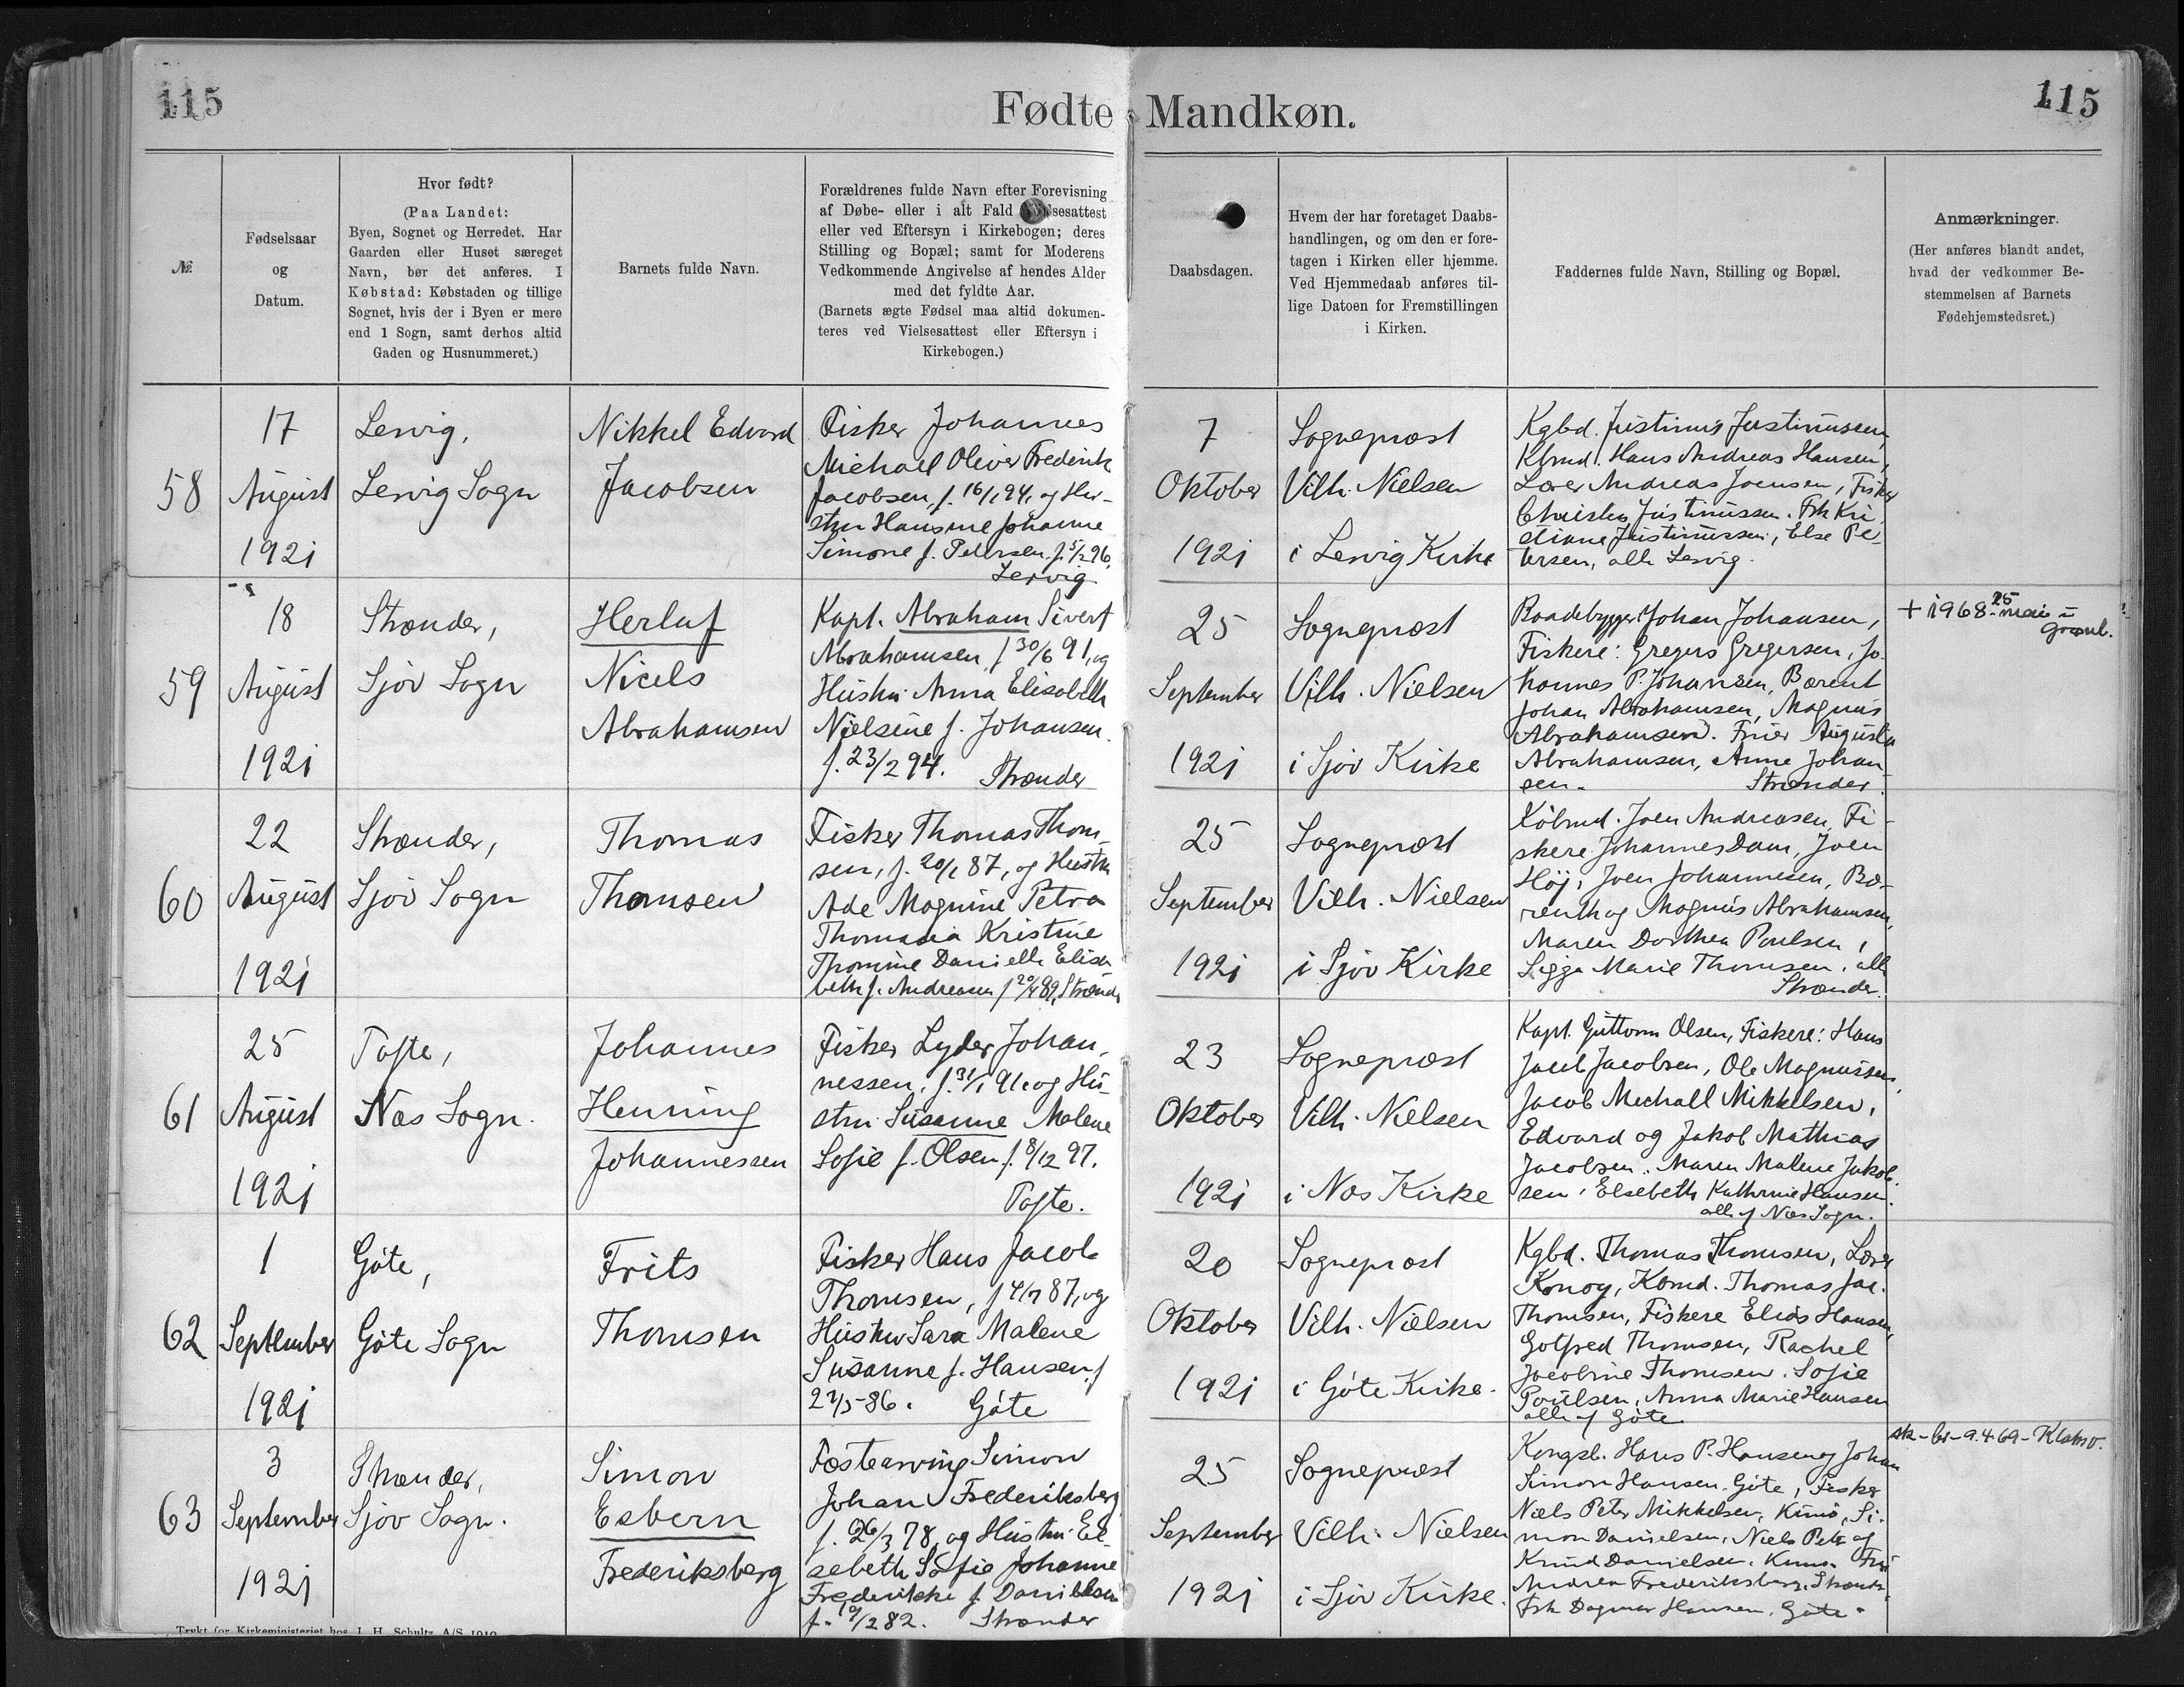 115
Fødte Mandkøn.
115
№
Fødselsaar
og
Datum.
Hvor født?
(Paa Landet:
Byen, Sognet og Herredet. Har
Gaarden eller Huset særeget
Navn, bør det anføres. I
Købstad: Købstaden og tillige
Sognet, hvis der i Byen er mere
end 1 Sogn, samt derhos altid
Gaden og Husnummeret.)
Barnets fulde Navn.
Forældrenes fulde Navn efter Forevisning
af Døbe- eller i alt Fald
eller ved Eftersyn i Kirkebogen; deres
Stilling og Bopæl; samt for Moderens
Vedkommende Angivelse af hendes Alder
med det fyldte Aar.
(Barnets ægte Fødsel maa altid dokumen-
teres ved Vielsesattest eller Eftersyn i
Kirkebogen.)
Daabsdagen.
Hvem der har foretaget Daabs-
handlingen, og om den er fore-
tagen i Kirken eller hjemme.
Ved Hjemmedaab anføres til-
lige Datoen for Fremstillingen
i Kirken.
Faddernes fulde Navn, Stilling og Bopæl.
Anmærkninger.
(Her anføres blandt andet,
hvad der vedkommer Be-
stemmelsen af Barnets
Fødehjemstedsret.)
58
17
August
1921
Lervig,
Lervig Sogn
Nikkel Edvard
Jacobsen
Fisker Johannes
Michael Oliver Frederik
Jacobsen, f. 16/1 94, og Hu-
stru Hansine Johanne
Simone f. Petersen f. 5/2 96,
Lervig
7
Oktober
1921
Sognepræst
Vilh. Nielsen
i Lervig Kirke
Kgbd. Justinus Justinussen,
Kbmd. Hans Andreas Hansen,
Lærer Andreas Joensen, Fisker
Christen Justinussen. Frk Kri
stiane Justinussen, Else Pe-
tersen, alle Lervig.
59
18
August
1921
Strænder,
Sjov Sogn
Herluf
Niels
Abrahamsen
Kapt. Abraham Sivert
Abrahamsen f 30/6 91, og
Hustru Anna Elisabeth
Nielsine f. Johansen
f. 23/2 94. Strænder
25
September
1921
Sognepræst
Vilh. Nielsen
i Sjov Kirke
Baadebygger Johan Johansen,
Fiskere: Gregers Gregersen, Jo-
hannes P. Johansen, Bærent
Johan Abrahamsen, Magnus
Abrahamsen. Fruer Augusta
Abrahamsen, Anne Johan-
sen. Strænder.
+ 1968 25 mai i
Grønl.
60
22
August
1921
Strænder,
Sjov Sogn
Thomas
Thomsen
Fisker Thomas Thom-
sen, f. 20/1 87, og Hustru
Ade Magnine Petra
Thomasia Kristine
Thomine Danielle Elisa
beth f. Andreasen f 20/4 89, Strænder
25
September
1921
Sognepræst
Vilh. Nielsen
i Sjov Kirke
Købmd. Joen Andreasen, Fi-
skere Johannes Dam, Joen
Høj, Joen Johannesen, Bæ-
renth og Magnus Abrahamsen,
Maren Dorthea Poulsen,
Sigga Marie Thomsen, alle
Strænder.
61
25
August
1921
Tofte,
Næs Sogn.
Johannes
Henning
Johannessen
Fisker Lyder Johan-
nessen, f. 31/1 91. og Hu-
stru Susanne Malene
Sofie f. Olsen f. 8/12 97.
Tofte.
23
Oktober
1921
Sognepræst
Vilh. Nielsen
i Næs Kirke
Kapt. Guttorm Olsen, Fiskere: Hans
Jacob Jacobsen, Ole Magnussen,
Jacob Michall Mikkelsen,
Edvard og Jakob Mathias
Jacobsen. Maren Malene Jakob-
sen, Elsebeth Kathrine Hansen.
alle af Næs Sogn.
62
1
September
1921
Gøte,
Gøte Sogn
Frits
Thomsen
Fisker Hans Jacob
Thomsen, f 4/7 87, og
Hustru Sara Malene
Susanne f. Hansen f
27/5 86. Gøte
20
Oktober
1921
Sognepræst
Vilh. Nielsen
i Gøte Kirke.
Kgbd. Thomas Thomsen, Lærer
Konoy, Kbmd. Thomas Jac.
Thomsen, Fiskere Elias Hansen,
Gotfred Thomsen, Rachel
Jacobine Thomsen. Sofie
Poulsen, Anna Marie Hansen
alle af Gøte
63
3
September
1921
Strænder,
Sjov Sogn.
Simon
Esbern
Frederiksberg
Fæstearving Simon
Johan Frederiksberg,
f. 26/3 78, og Hustru El-
sebeth Sofie Johanne
Frederikke f. Danielsen
f. 19/2 82. Strænder
25
September
1921
Sognepræst
Vilh. Nielsen
i Sjov Kirke.
Kongsb. Hans P. Hansen og Johan
Simon Hansen, Gøte, Fisker
Niels Peter Mikkelsen, Kunø, Si-
mon Danielsen, Niels Peter og
Knud Danielsen. Kunø. Fru
Andrea Frederiksberg, Strænder
Frk Dagmar Hansen. Gøte.
sk-br-9.4.69-Klaksv.
Trykt for Kirkeministeriet hos J. H. Schultz A/S 1919